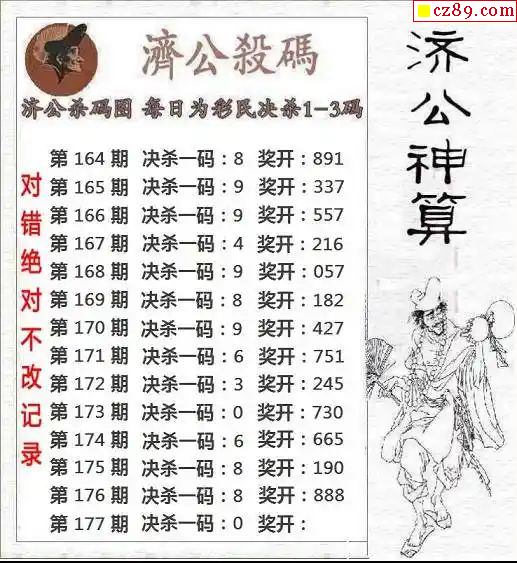 cz89.com
濟公殺碼
济公杀码图 每日为彩民决杀1-3码
第 164 期 决杀一码：8 奖开：891
第 165 期 决杀一码：9 奖开：337
第 166 期 决杀一码：9 奖开：557
第 167 期 决杀一码：4 奖开：216
第 168 期 决杀一码：9 奖开：057
第 169 期 决杀一码：8 奖开：182
第 170 期 决杀一码：9 奖开：427
第 171 期 决杀一码：6 奖开：751
第 172 期 决杀一码：3 奖开：245
第 173 期 决杀一码：0 奖开：730
第 174 期 决杀一码：6 奖开：665
第 175 期 决杀一码：8 奖开：190
第 176 期 决杀一码：8 奖开：888
第 177 期 决杀一码：0 奖开：
对错绝对不改记录
济公神算